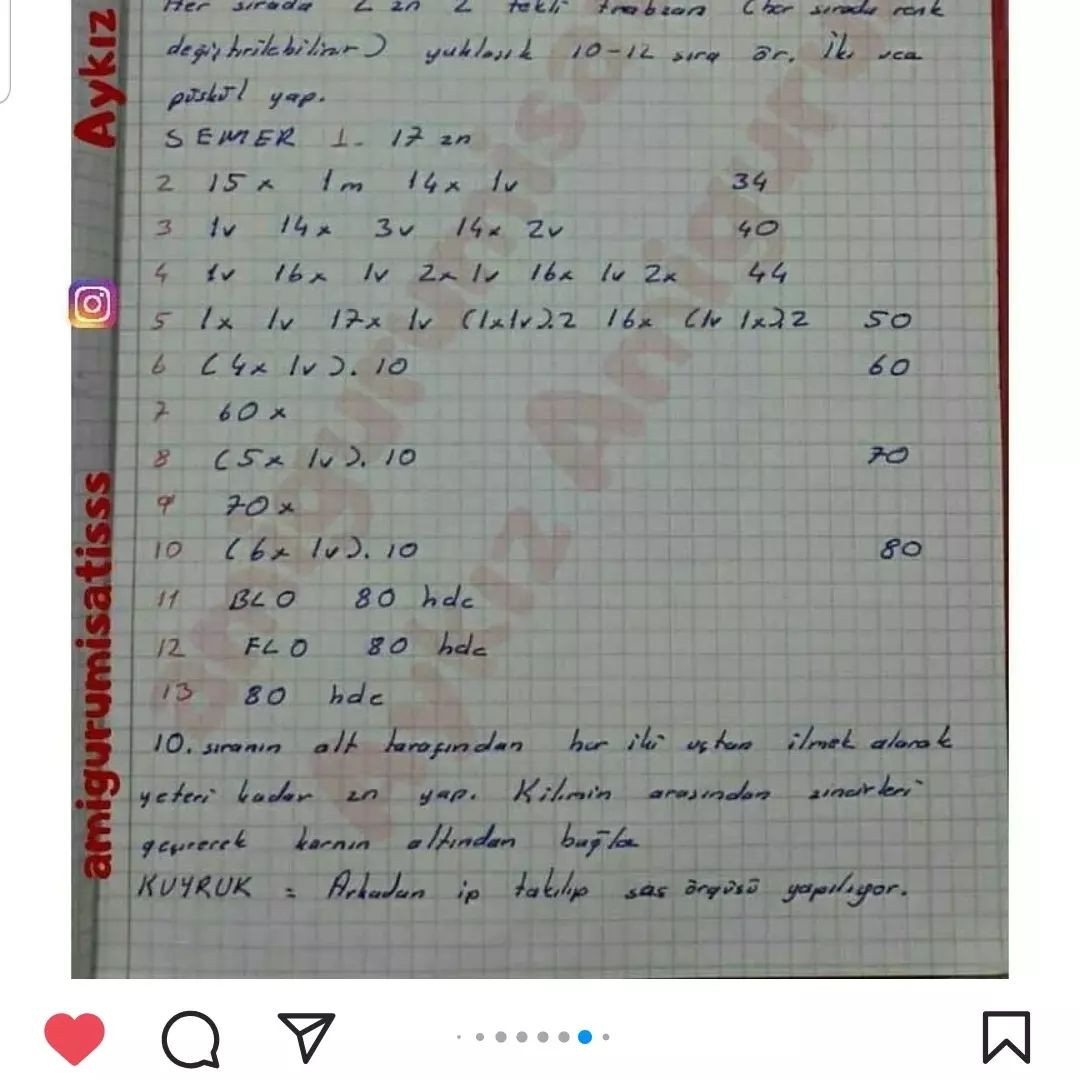 Her sırada 2 zn 2 tekli trabzan (her sırada renk
değiştirilebilinir) yaklaşık 10-12 sıra ör. İki uca
püskül yap.
SEMER 1- 17 zn
2 15x 1m 14x 1v 34
3 1v 14x 3v 14x 2v 40
4 1v 16x 1v 2x 1v 16x 1v 2x 44
5 1x 1v 17x 1v (1x1v).2 16x (1v 1x).2 50
6 (4x 1v). 10 60
7 60x
8 (5x 1v). 10 70
9 70x
10 (6x 1v). 10 80
11 BLO 80 hdc
12 FLO 80 hdc
13 80 hdc
10. sıranın alt tarafından her iki uçtan ilmek alarak
yeteri kadar zn yap. Kilimin arasından zincirleri
geçirerek karnın altından bağla
KUYRUK = Arkadan ip takılıp saç örgüsü yapılıyor.
Aykız
amigurumisatisss
amigurumisa
Aykız Amiguru